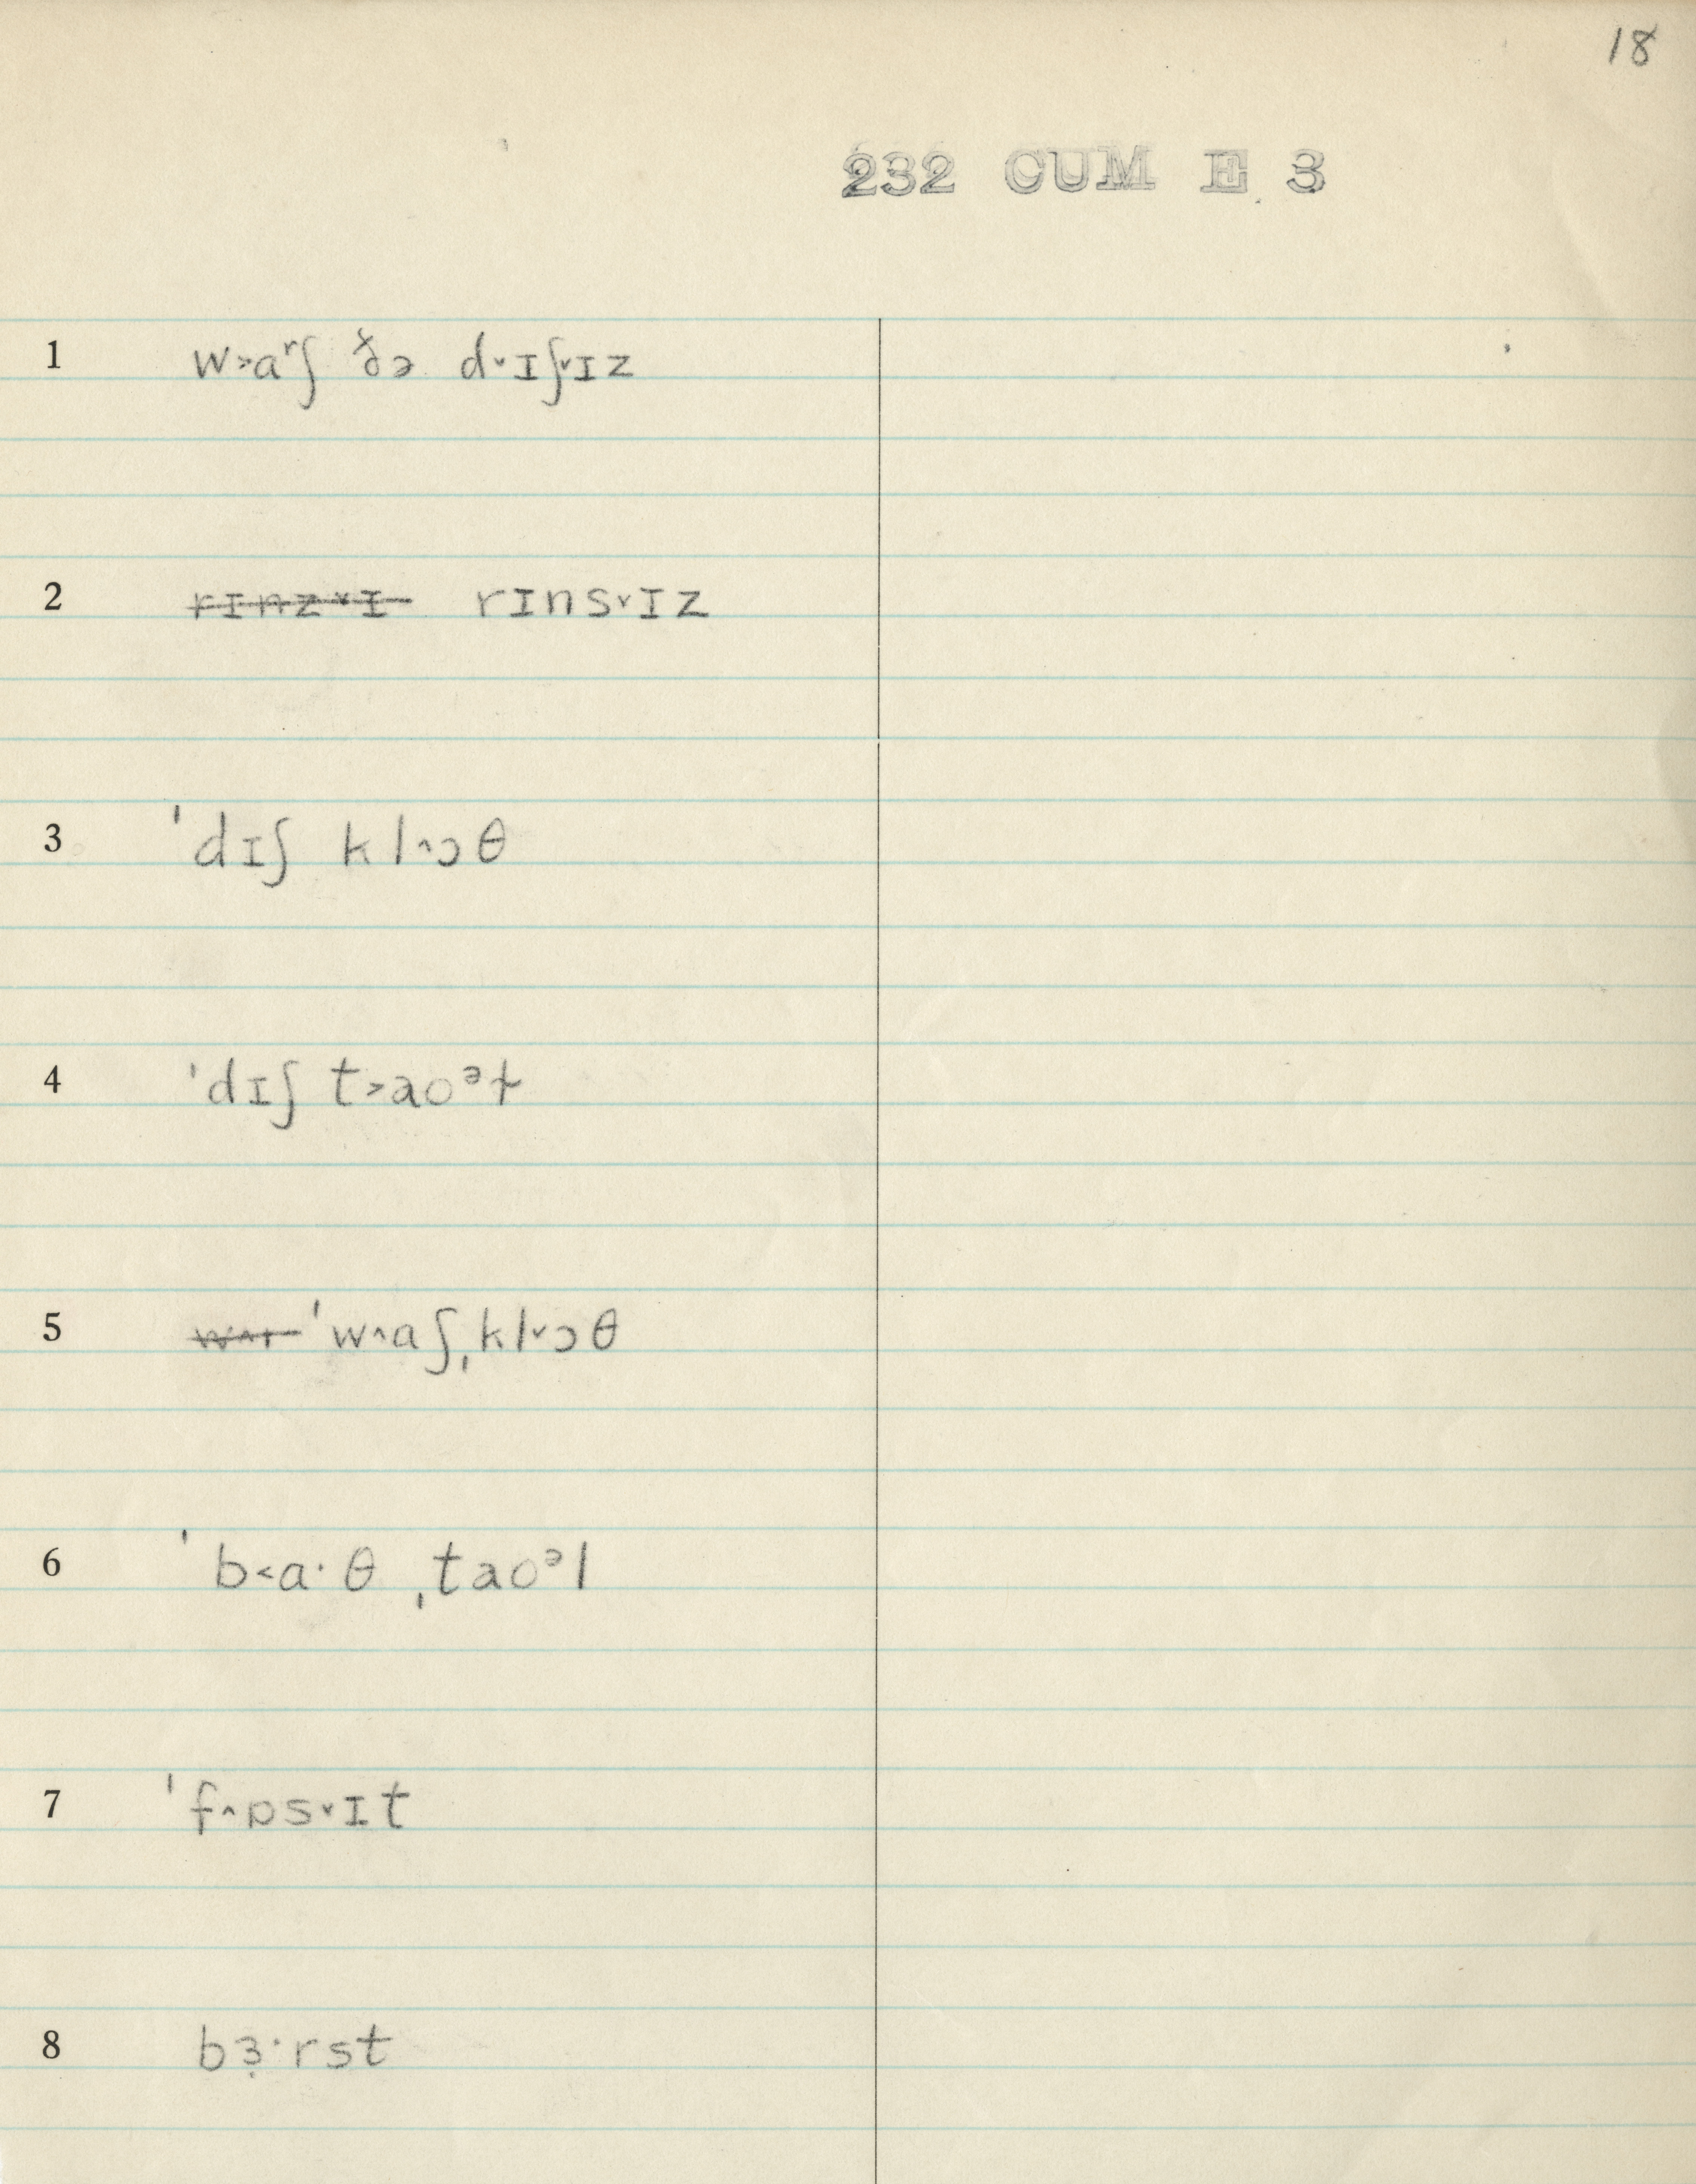 18
232 CUM E 3
1 w˃aʳʃ ðə d˅ɪʃ˅ɪz
2 rɪnz˅ɪ rɪns˅ɪz
3 ˈdɪʃ kl˄ɔθ
4 ˈdɪʃ t˃aoᵊɫ
5 ˈw˄aʃˌkl˅ɔθ
6 ˈb˂a·θ ˌtaoᵊl
7 ˈf˄ɒs˅ɪt
8 bɜ̣·rst